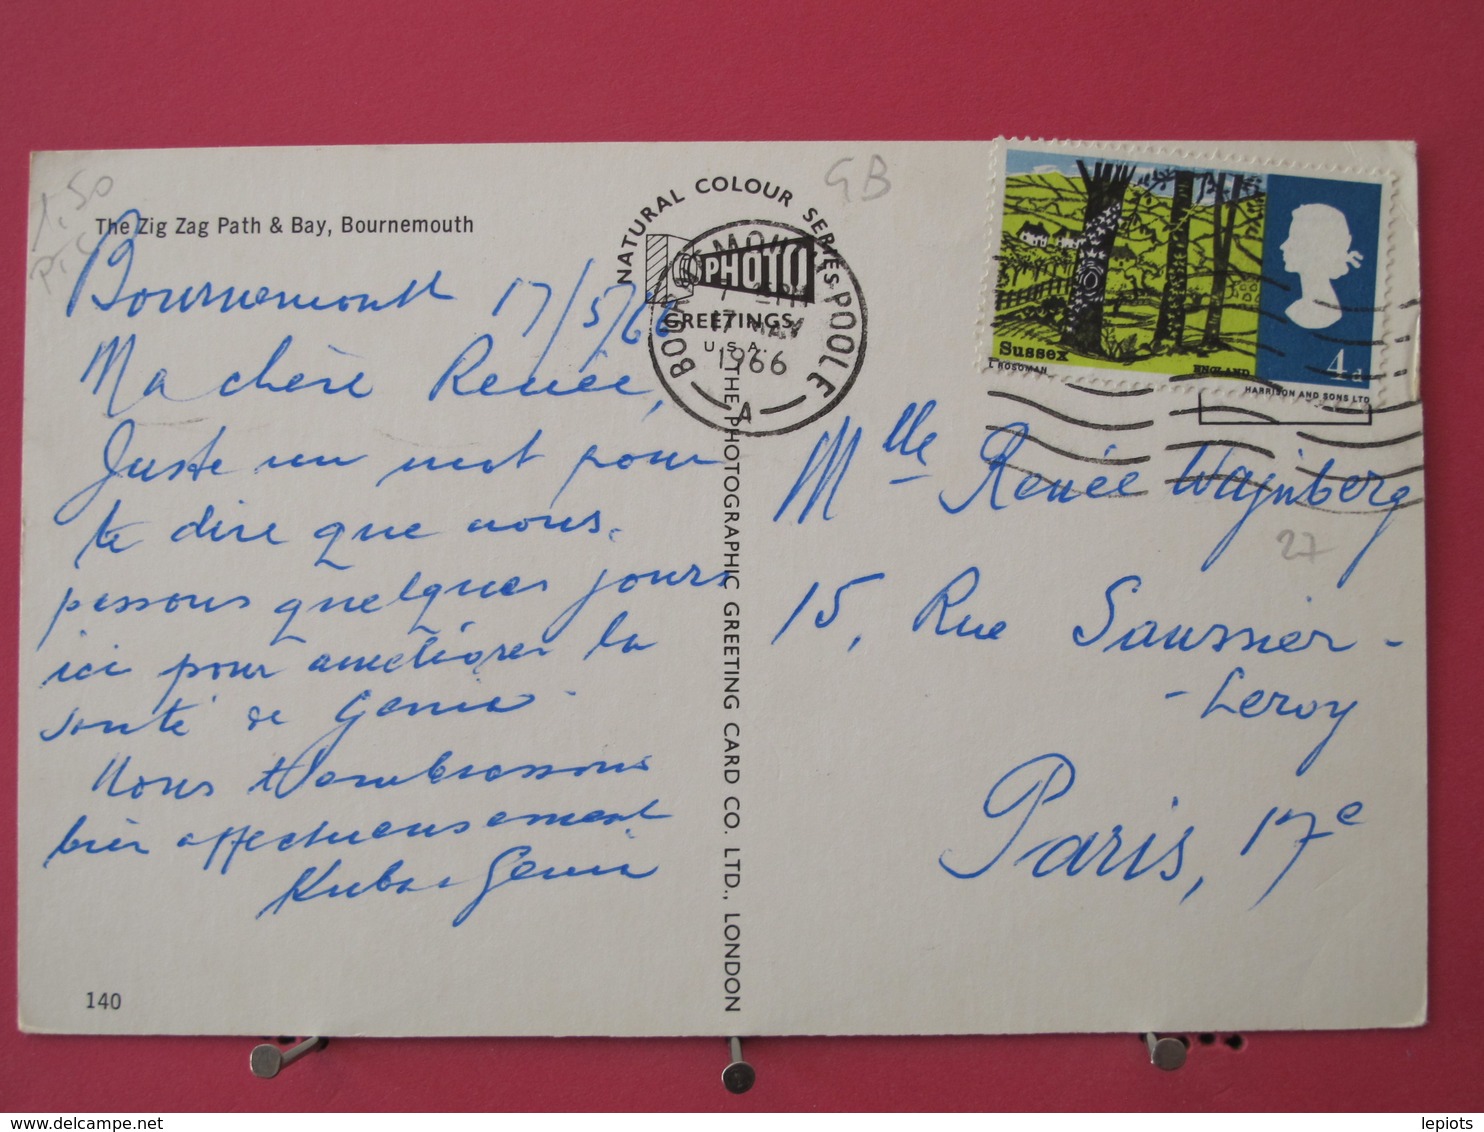 1,50
GB
The Zig Zag Path & Bay, Bournemouth
Bournemouth 17/5/66
Ma chère Renée,
Juste un mot pour
te dire que nous
passons quelques jours
ici pour améliorer la
santé de Genia.
Nous t'embrassons
bien affectueusement
Kuba Genia
140
NATURAL COLOUR SERIES
PHOTO
GREETINGS
U.S.A.
THE PHOTOGRAPHIC GREETING CARD CO. LTD., LONDON
BOURNEMOUTH-POOLE
PM
17 MAY
1966
A
Sussex
ENGLAND
4d
L ROSOMAN
HARRISON AND SONS LTD
Mlle Renée Wajnberg
27
15, Rue Saussier-
-Leroy
Paris, 17e
lepiots